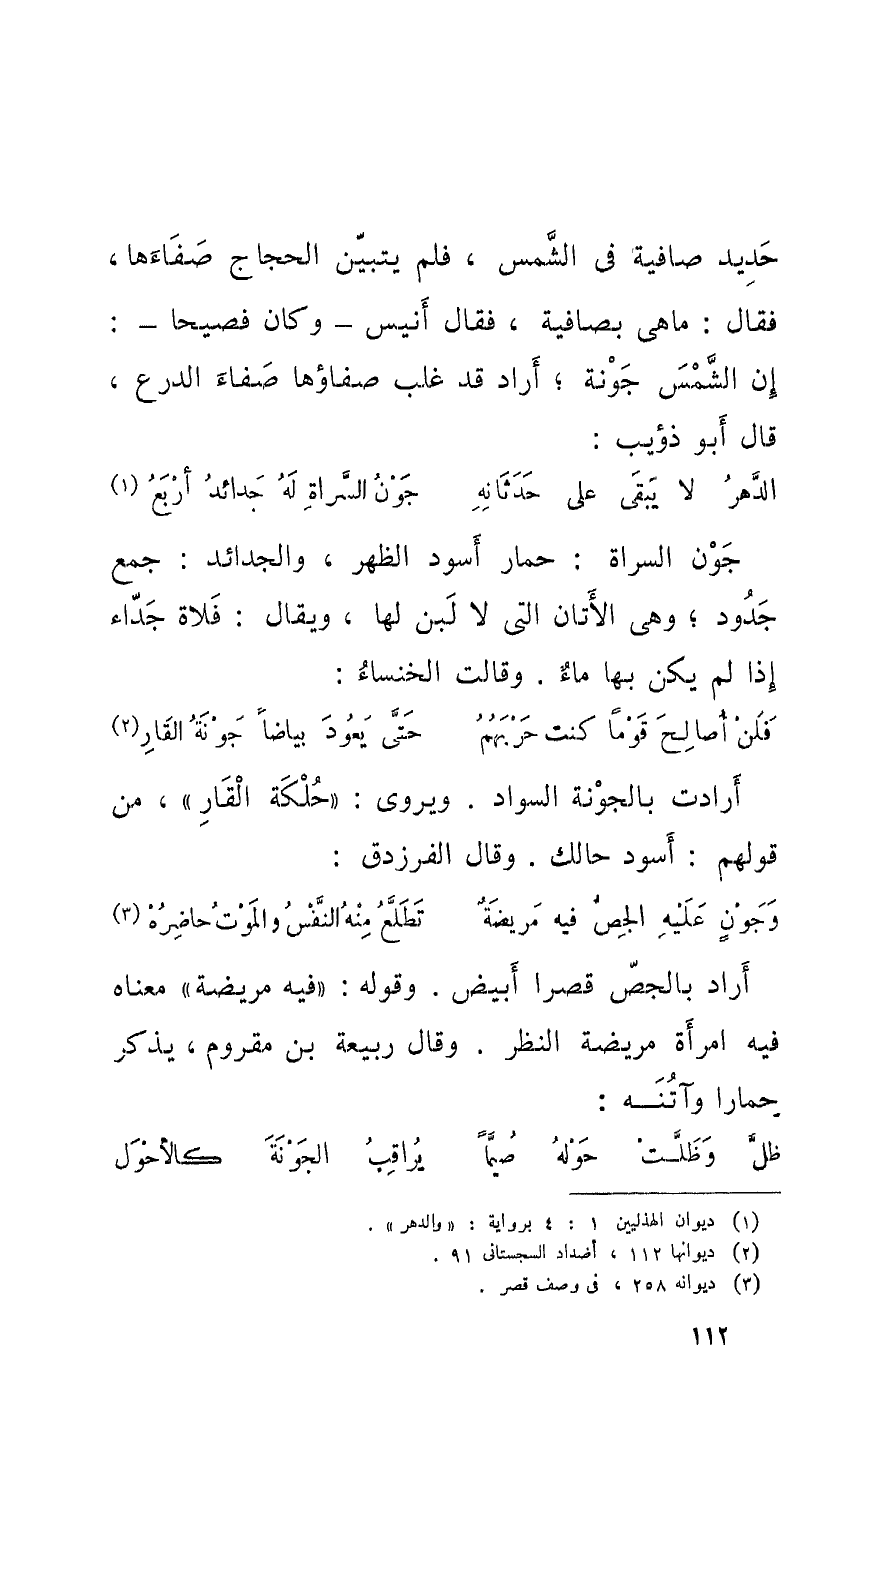 حَدِيد صافية فى الشَّمس ، فلم يتبيّن الحجاج صَفَاءَها ،
فقال : ماهى بصافية ، فقال أَنيس – وكان فصيحا – :
إن الشَّمْسَ جَوْنة ؛ أَراد قد غلب صفاؤها صَفاءَ الدرع ،
قال أَبو ذؤيب :
الدَّهرُ لا يَبقَى على حَدَثَانِهِ جَوْنُ السَّراةِ لَهُ جَدائدُ أَرْبَعُ (١)
جَوْن السراة : حمار أَسود الظهر ، والجدائد : جمع
جَدُود ؛ وهى الأَتان التى لا لَبن لها ، ويقال : فَلاة جَدّاء
إذا لم يكن بها ماءٌ . وقالت الخنساءُ :
فَلَنْ أُصالِحَ قَوْمًا كنت حَرْبَهُمُ حَتَّى يَعُودَ بياضاً جَونَةُ القَارِ (٢)
أَرادت بالجوْنة السواد . ويروى : «حُلْكَة الْقَارِ» ، من
قولهم : أَسود حالك . وقال الفرزدق :
وَجَوْنٍ عَلَيْهِ الجصُّ فيه مَريضَةٌ تَطَلَّعُ مِنْهُ النَّفْسُ والمَوْتُ حاضِرُهْ (٣)
أَراد بالجصّ قصرا أَبيض . وقوله : «فيه مريضة» معناه
فيه امرأَة مريضة النظر . وقال ربيعة بن مقروم ، يذكر
حِمارا وآتُنَــه :
ظلَّ وَظَلَّـتْ حَوْلَهُ صُيَّماً يُراقِبُ الجَوْنَةَ كالأَحْوَلِ
(١) ديوان الهذليين ١ : ٤ برواية : «والدهر» .
(٢) ديوانها ١١٢ ، أضداد السجستانى ٩١ .
(٣) ديوانه ٢٥٨ ، فى وصف قصر .
١١٢